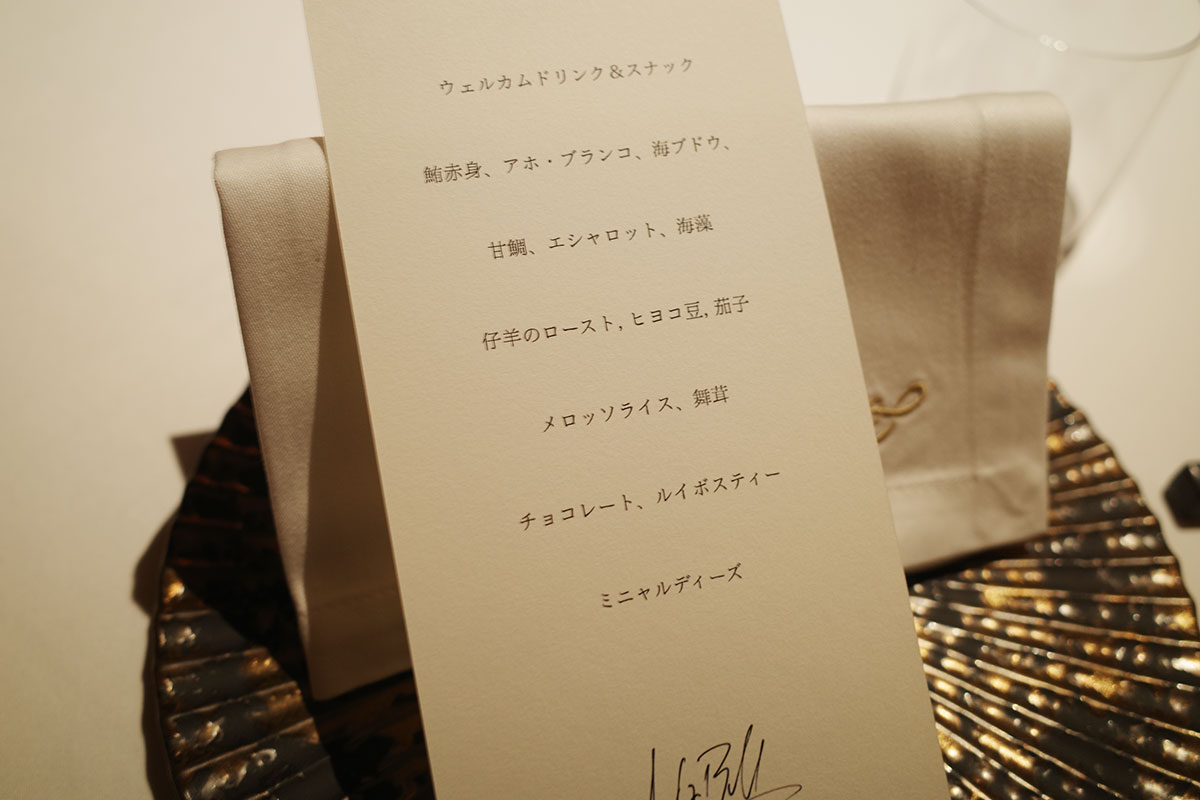 ウェルカムドリンク&スナック
鮪赤身、アホ・ブランコ、海ブドウ、
甘鯛、エシャロット、海藻
仔羊のロースト, ヒヨコ豆, 茄子
メロッソライス、舞茸
チョコレート、ルイボスティー
ミニャルディーズ